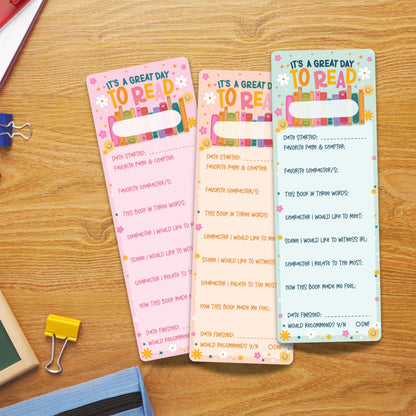 IT'S A GREAT DAY
TO READ
DATE STARTED:
FAVORITE PAGE & CHAPTER:
FAVORITE CHARACTER/S:
THIS BOOK IN THREE WORDS:
CHARACTER I WOULD LIKE TO MEET:
SCENE I WOULD LIKE TO WITNESS IRL:
CHARACTER I RELATE TO THE MOST:
HOW THIS BOOK MADE ME FEEL:
DATE FINISHED:
WOULD RECOMMEND? Y/N
IT'S A GREAT DAY
TO READ
DATE STARTED:
FAVORITE PAGE & CHAPTER:
FAVORITE CHARACTER/S:
THIS BOOK IN THREE WORDS:
CHARACTER I WOULD LIKE TO MEET:
SCENE I WOULD LIKE TO WITNESS IRL:
CHARACTER I RELATE TO THE MOST:
HOW THIS BOOK MADE ME FEEL:
DATE FINISHED:
WOULD RECOMMEND? Y/N DNF
IT'S A GREAT DAY
TO READ
DATE STARTED:
FAVORITE PAGE & CHAPTER:
FAVORITE CHARACTER/S:
THIS BOOK IN THREE WORDS:
CHARACTER I WOULD LIKE TO MEET:
SCENE I WOULD LIKE TO WITNESS IRL:
CHARACTER I RELATE TO THE MOST:
HOW THIS BOOK MADE ME FEEL:
DATE FINISHED:
WOULD RECOMMEND? Y/N DNF